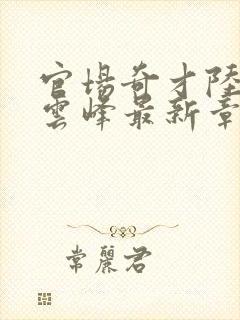 官場奇才陸
雲峰最新章
常麗君